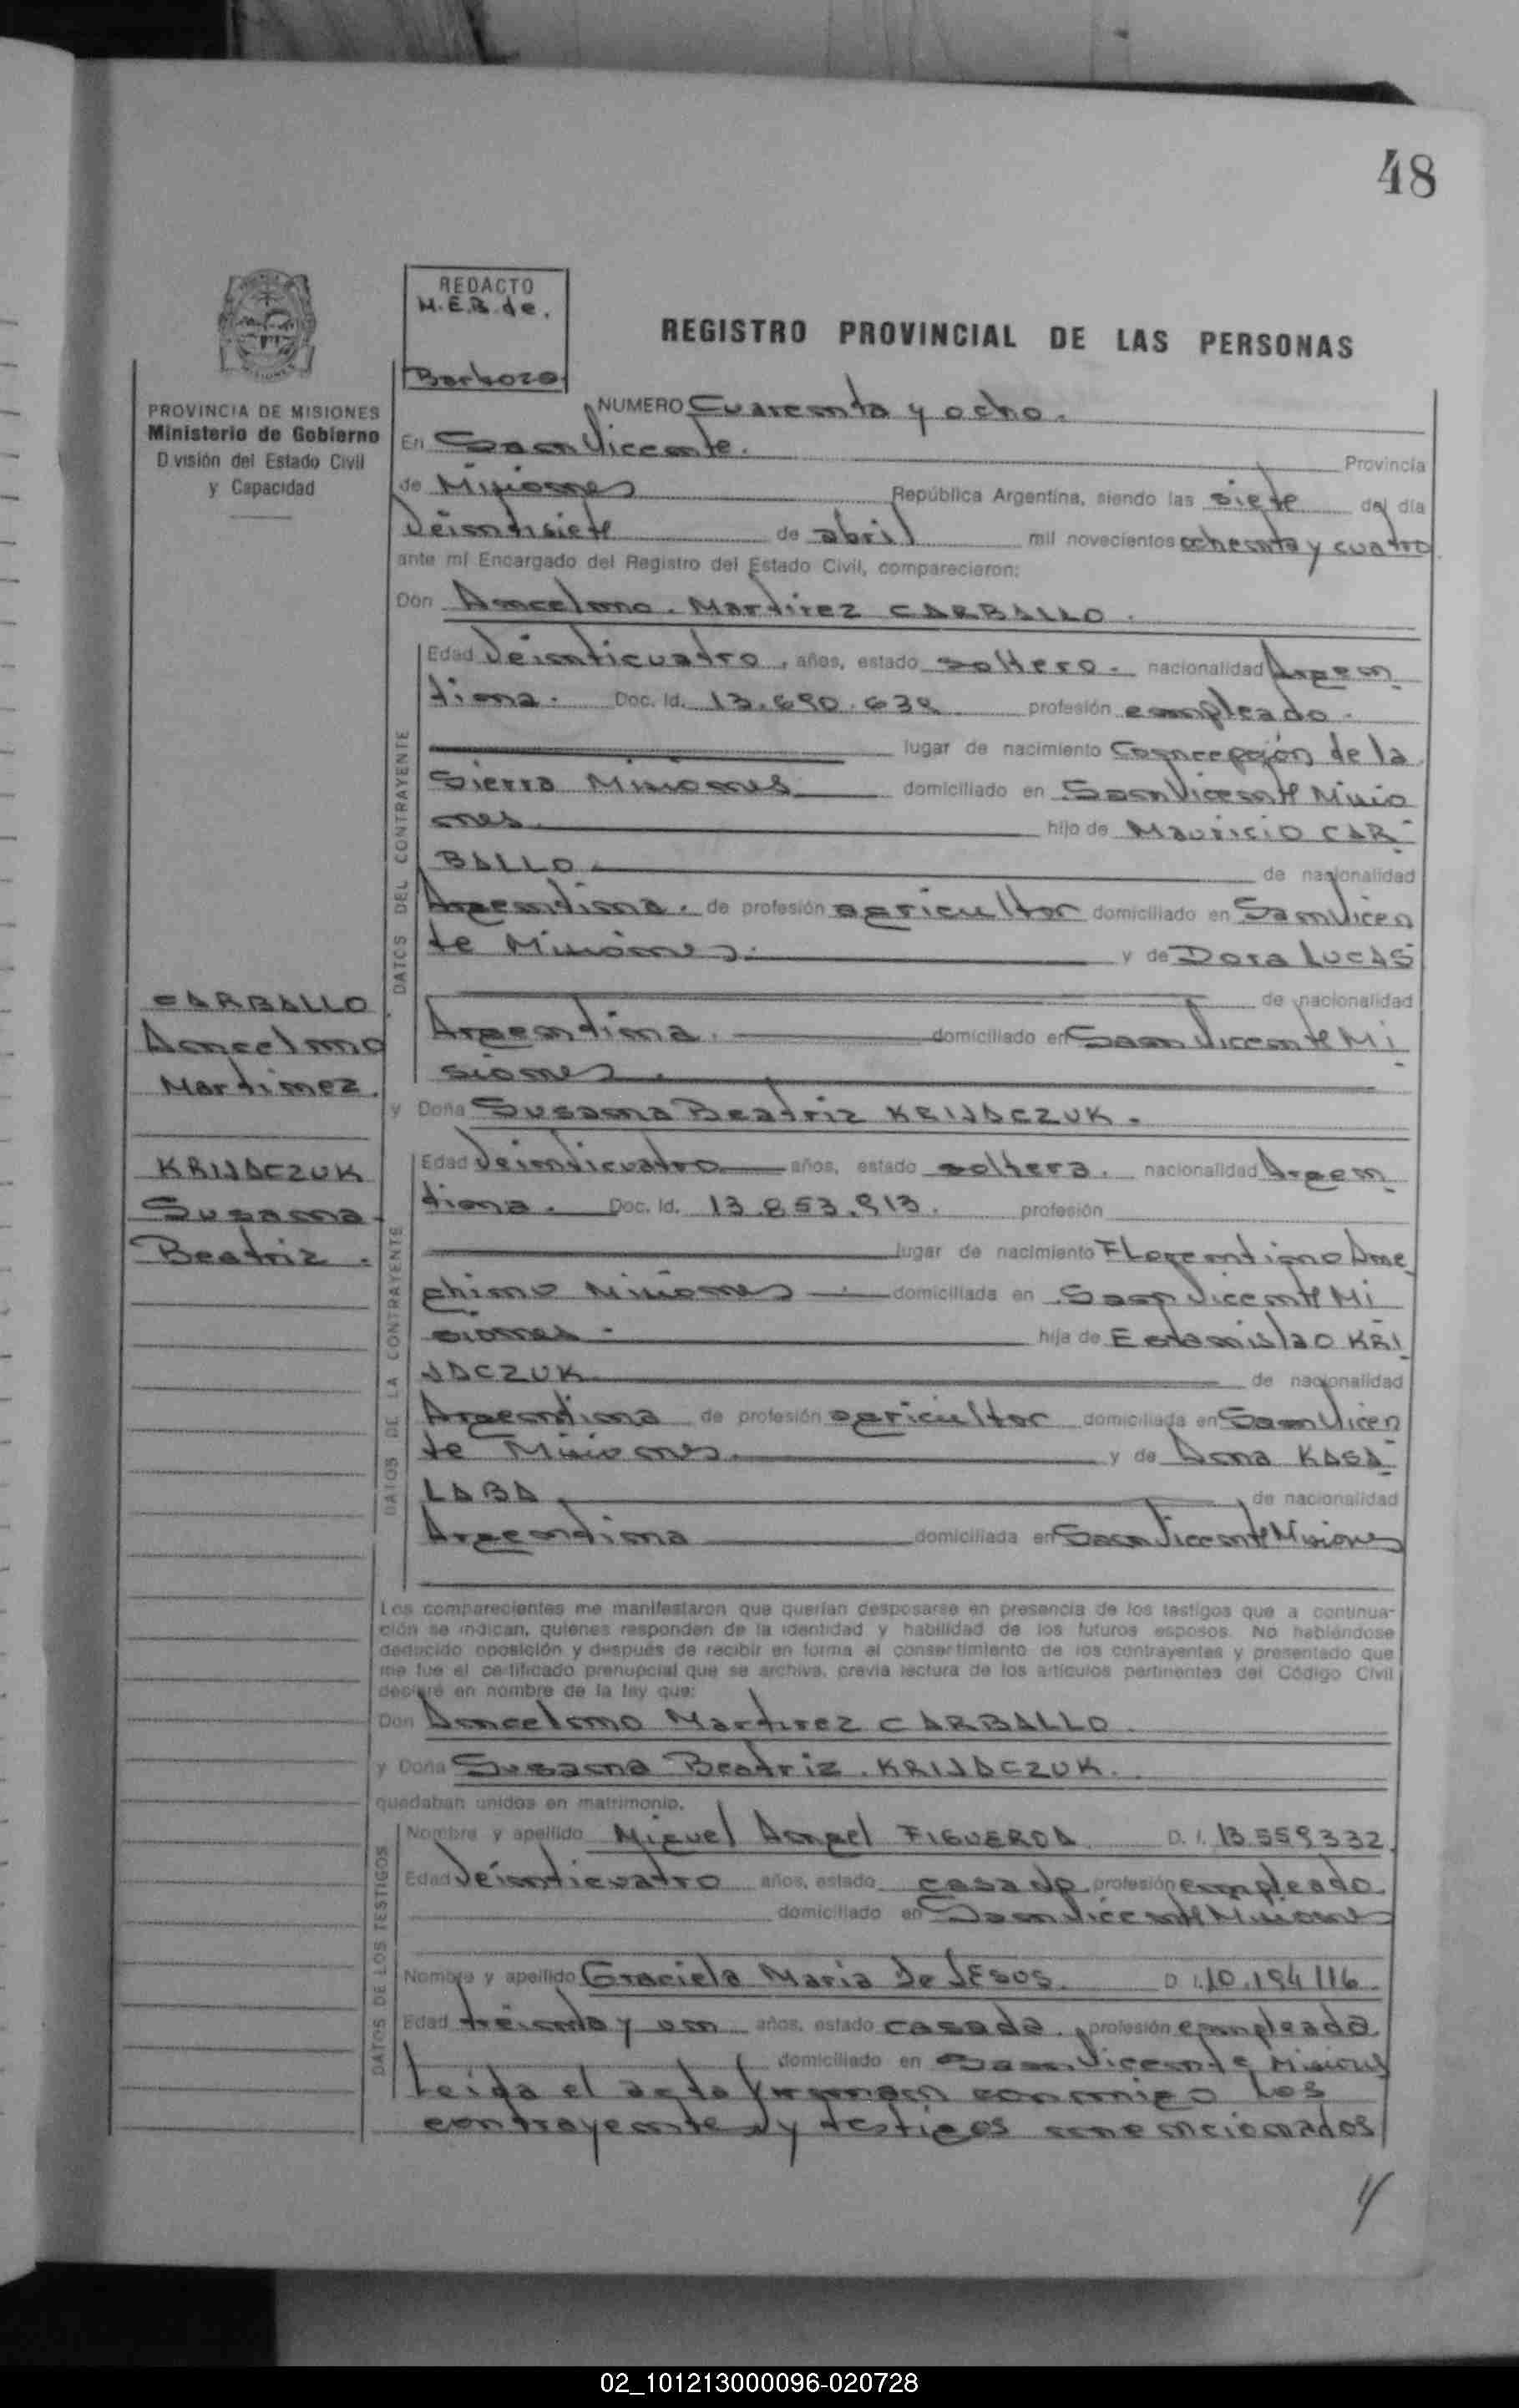 48
REDACTO
M.E.B. de.
Barboza
REGISTRO PROVINCIAL DE LAS PERSONAS
PROVINCIA DE MISIONES
Ministerio de Gobierno
División del Estado Civil
y Capacidad
NUMERO Cuarenta y ocho.
En San Vicente. Provincia
de Misiones República Argentina, siendo las siete del día
Veintisiete de abril mil novecientos ochenta y cuatro
ante mí Encargado del Registro del Estado Civil, comparecieron:
Don Ancelmo. Martirez CARBALLO.
Edad Veinticuatro, años, estado soltero. nacionalidad Argen
tina. Doc. Id. profesión empleado.
lugar de nacimiento Concepción de la
Sierra Misiones domiciliado en San Vicente Misio
nes. hijo de Mauricio CAR-
BALLO de nacionalidad
Argentina. de profesión agricultor domiciliado en San Vicen
te Misiones. y de Dora LUCAS
de nacionalidad
Argentina. domiciliado en San Vicente Mi
siones.
CARBALLO
Ancelmo
Martinez.
y Doña Susana Beatriz KRIJACZUK.
Edad Veinticuatro años, estado soltera. nacionalidad Argen
tina. Doc. Id. 13.853.913. profesión
lugar de nacimiento Florentino Ame
ghino Misiones domiciliada en San Vicente Mi
siones. hija de Estanislao KRI
JACZUK de nacionalidad
Argentina de profesión agricultor domiciliada en San Vicen
te Misiones. y de Ana KASA
LABA, de nacionalidad
Argentina domiciliada en San Vicente Misiones
KRIJACZUK
Susana
Beatriz.
DATOS DEL CONTRAYENTE
DATOS DE LA CONTRAYENTE
Los comparecientes me manifestaron que querían desposarse en presencia de los testigos que a continua-
ción se indican, quienes responden de la identidad y habilidad de los futuros esposos. No habiéndose
deducido oposición y después de recibir en forma el consentimiento de los contrayentes y presentado que
me fue el certificado prenupcial que se archiva, previa lectura de los artículos pertinentes del Código Civil
declaré en nombre de la ley que:
Don Ancelmo Martirez CARBALLO.
y Doña Susana Beatriz. KRIJACZUK.
quedaban unidos en matrimonio.
DATOS DE LOS TESTIGOS
Nombre y apellido Miguel Angel FIGUEROA D. I. 13.559.332
Edad Veinticuatro años, estado casado profesión empleado
domiciliado en San Vicente Misiones
Nombre y apellido Graciela Maria De JESUS. D I. 10.194.116
Edad treinta y un años, estado casada, profesión empleada
domiciliado en San Vicente Misiones
Leída el acta firman conmigo los
contrayentes y testigos mencionados
02_101213000096-020728